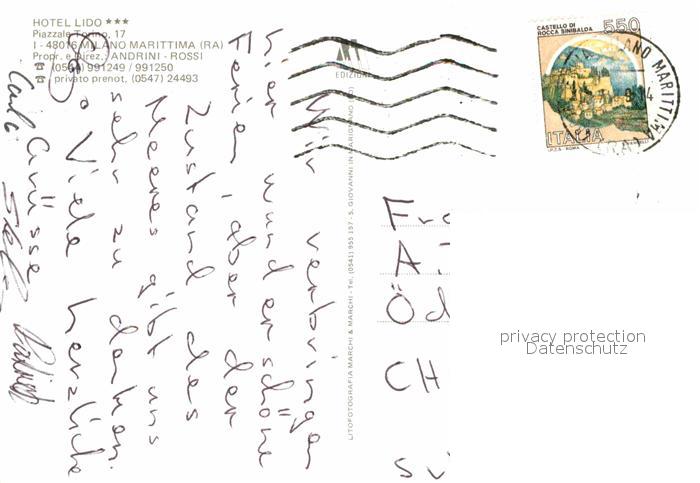 HOTEL LIDO ★★★
Piazzale Torino, 17
I - 48016 MILANO MARITTIMA (RA)
Propr. e Direz.: ANDRINI - ROSSI
(0544) 991249 / 991250
privato prenot. (0547) 24493
Wir verbringen
hier wunderschöne
Ferien, über den
Zustand des
Meeres gibt uns
sehr zu denken.
Viele herzliche
Grüsse
EDIZIONE
LITOFOTOGRAFIA MARCHI & MARCHI - Tel. (0541) 955 157 - S. GIOVANNI IN MARIGNANO (FO)
CASTELLO DI
ROCCA SINIBALDA
550
ITALIA
I.P.Z.S. - ROMA
MILANO MARITTIMA
(RA)
CH
privacy protection
Datenschutz